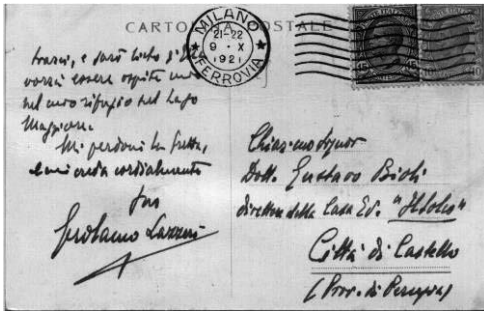 CARTOLINA POSTALE
MILANO
21-22
9·X
1921
FERROVIA
15
trarsi, e sarò lieto s'Ella
vorrà essere ospite mio
nel mio rifugio sul Lago
Maggiore.
Mi perdoni la fretta,
e mi creda cordialmente
suo
Gerolamo Lazzeri
Chiar.mo Signor
Dott. Gustavo Bioli
direttore della Casa Ed. "Il Solco"
Città di Castello
(Prov. di Perugia)